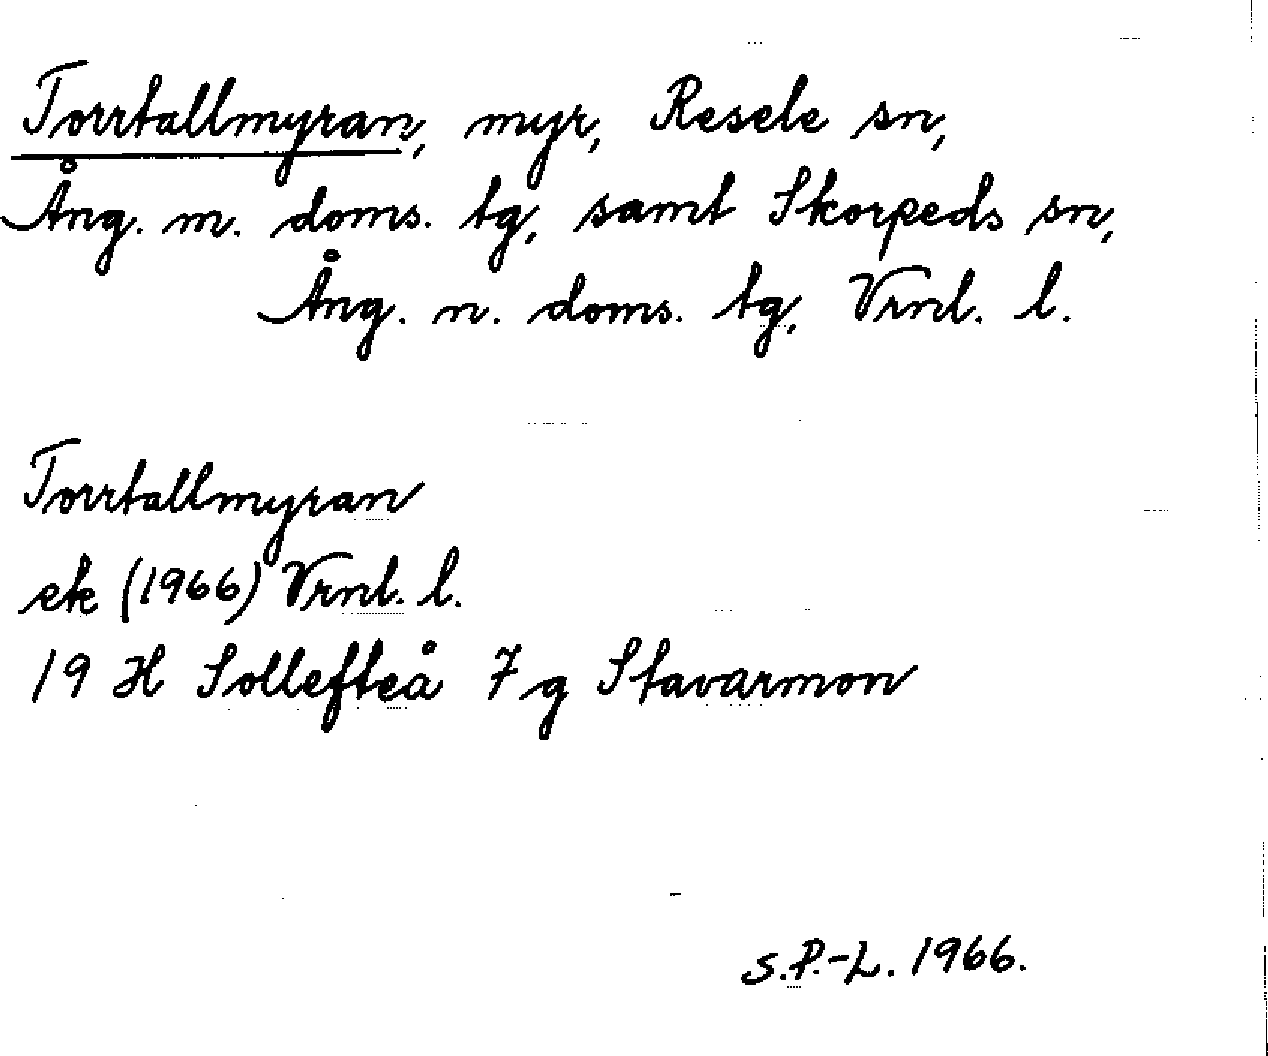 Torrtallmyran, myr, Resele sn,
Ång. m. doms. tg, samt Skorpeds sn,
Ång. n. doms. tg, Vrnl. l.
Torrtallmyran
ek (1966) Vrnl. l.
19 H Sollefteå 7 g Stavarmon
S.P.-L. 1966.